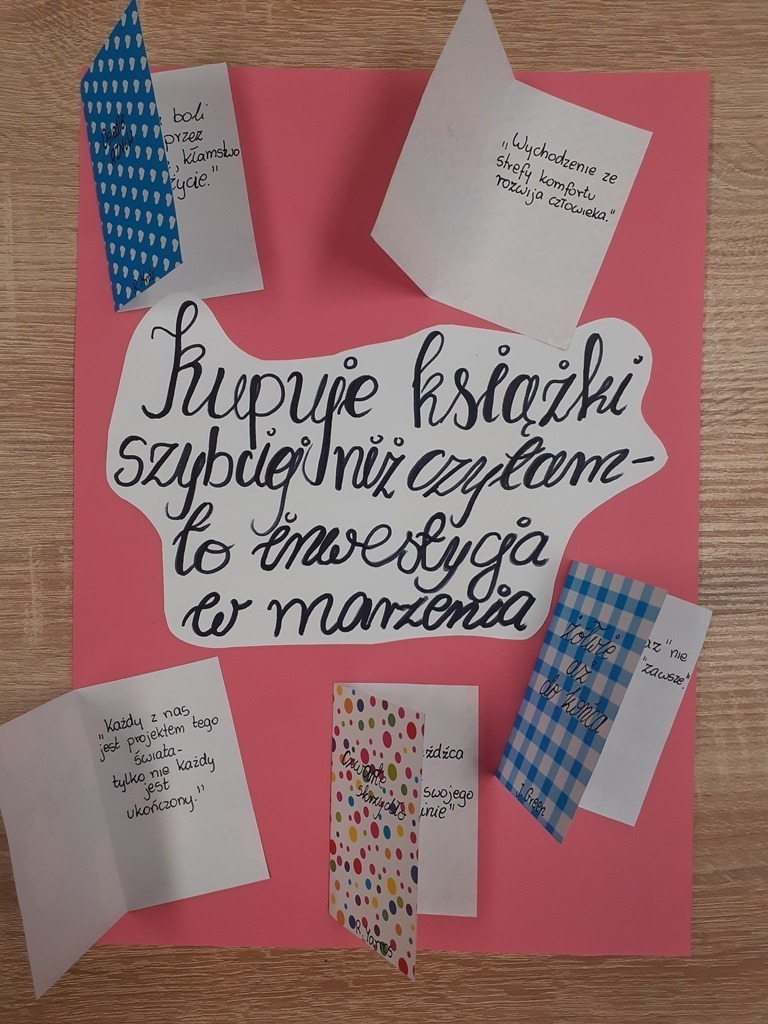 boli
przez
, kłamstwo
życie."
"Wychodzenie ze
strefy komfortu
rozwija człowieka."
Kupuje książki
szybciej niż czytam-
to inwestycja
w marzenia
żółwie
aż
do końca
J. Green
az "nie
"zawsze."
"Każdy z nas
jest projektem tego
świata-
tylko nie każdy
jest
ukończony."
Czwarte
skrzydło
R. Yarros
eźdźca
swojego
inie"